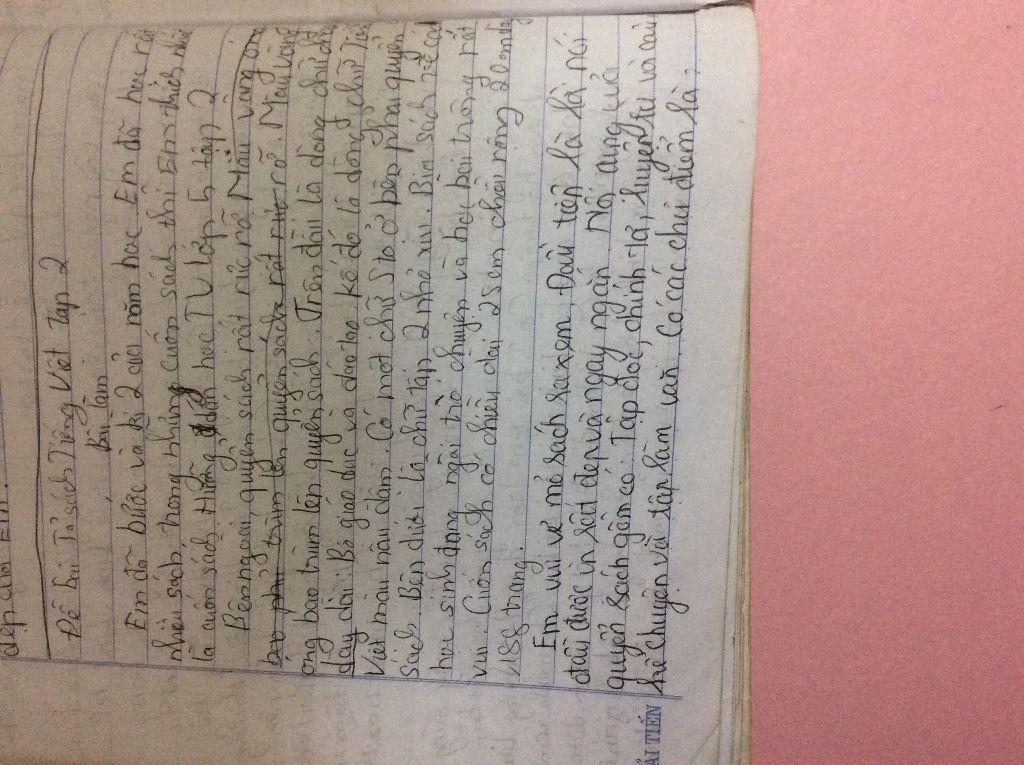 đẹp của Em.
Đề bài Tả sách Tiếng Việt Tập 2
Bài làm
Em đã bước và kì 2 của năm học Em đã học rất
nhiều sách trong những cuốn sách thì Em thích nhất
là cuốn sách Hướng dẫn học TV lớp 5 tập 2
Bên ngoài quyển sách rất rực rỡ Mầu vàng óng
bao phủ trùm lên quyển sách rất rực rỡ. Mầu vàng
óng bao trùm lên quyển sách. Trên đầu là dòng chữ
dày dài Bộ giáo dục và đào tạo kế đó là dòng chữ Tiếng
Việt màu nâu đậm. Có một chữ 5 to ở bên phải quyển
sách. Bên dưới là chữ tập 2 nhỏ xíu. Bìa sách vẽ các
học sinh đang ngồi trò chuyện và hay bàn trông rất
vui. Cuốn sách có chiều dài 25cm chiều rộng 20cm
188 trang.
Em vui vẻ mở sách ra xem. Đầu tiện là lời nói
đầu được in rất đẹp và ngay ngắn Nội dung của
quyển sách gồm có: Tập đọc, chính tả, luyện từ và câu
kể chuyện và tập làm văn. Có các chủ điểm là:
ẢI TIẾN